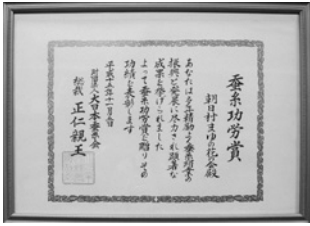 蚕糸功労賞
朝日村まゆの花の会殿
あなたは多年精励よく蚕糸絹業の
振興と発展に尽力され顕著な
成果を挙げられました
よって蚕糸功労賞を贈りその
功績を表彰します
平成十五年十一月六日
財団法人大日本蚕糸会
総裁 正仁親王